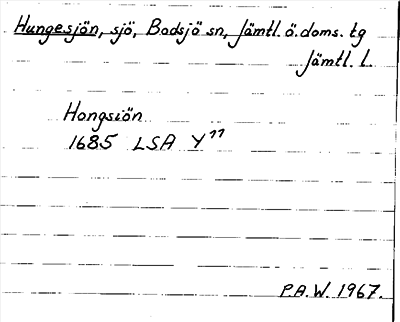 Hungesjön, sjö, Bodsjö sn, Jämtl. ö. doms. tg
Jämtl. L.
Hongsiön
1685 LSA Y¹¹
P.A.W. 1967.